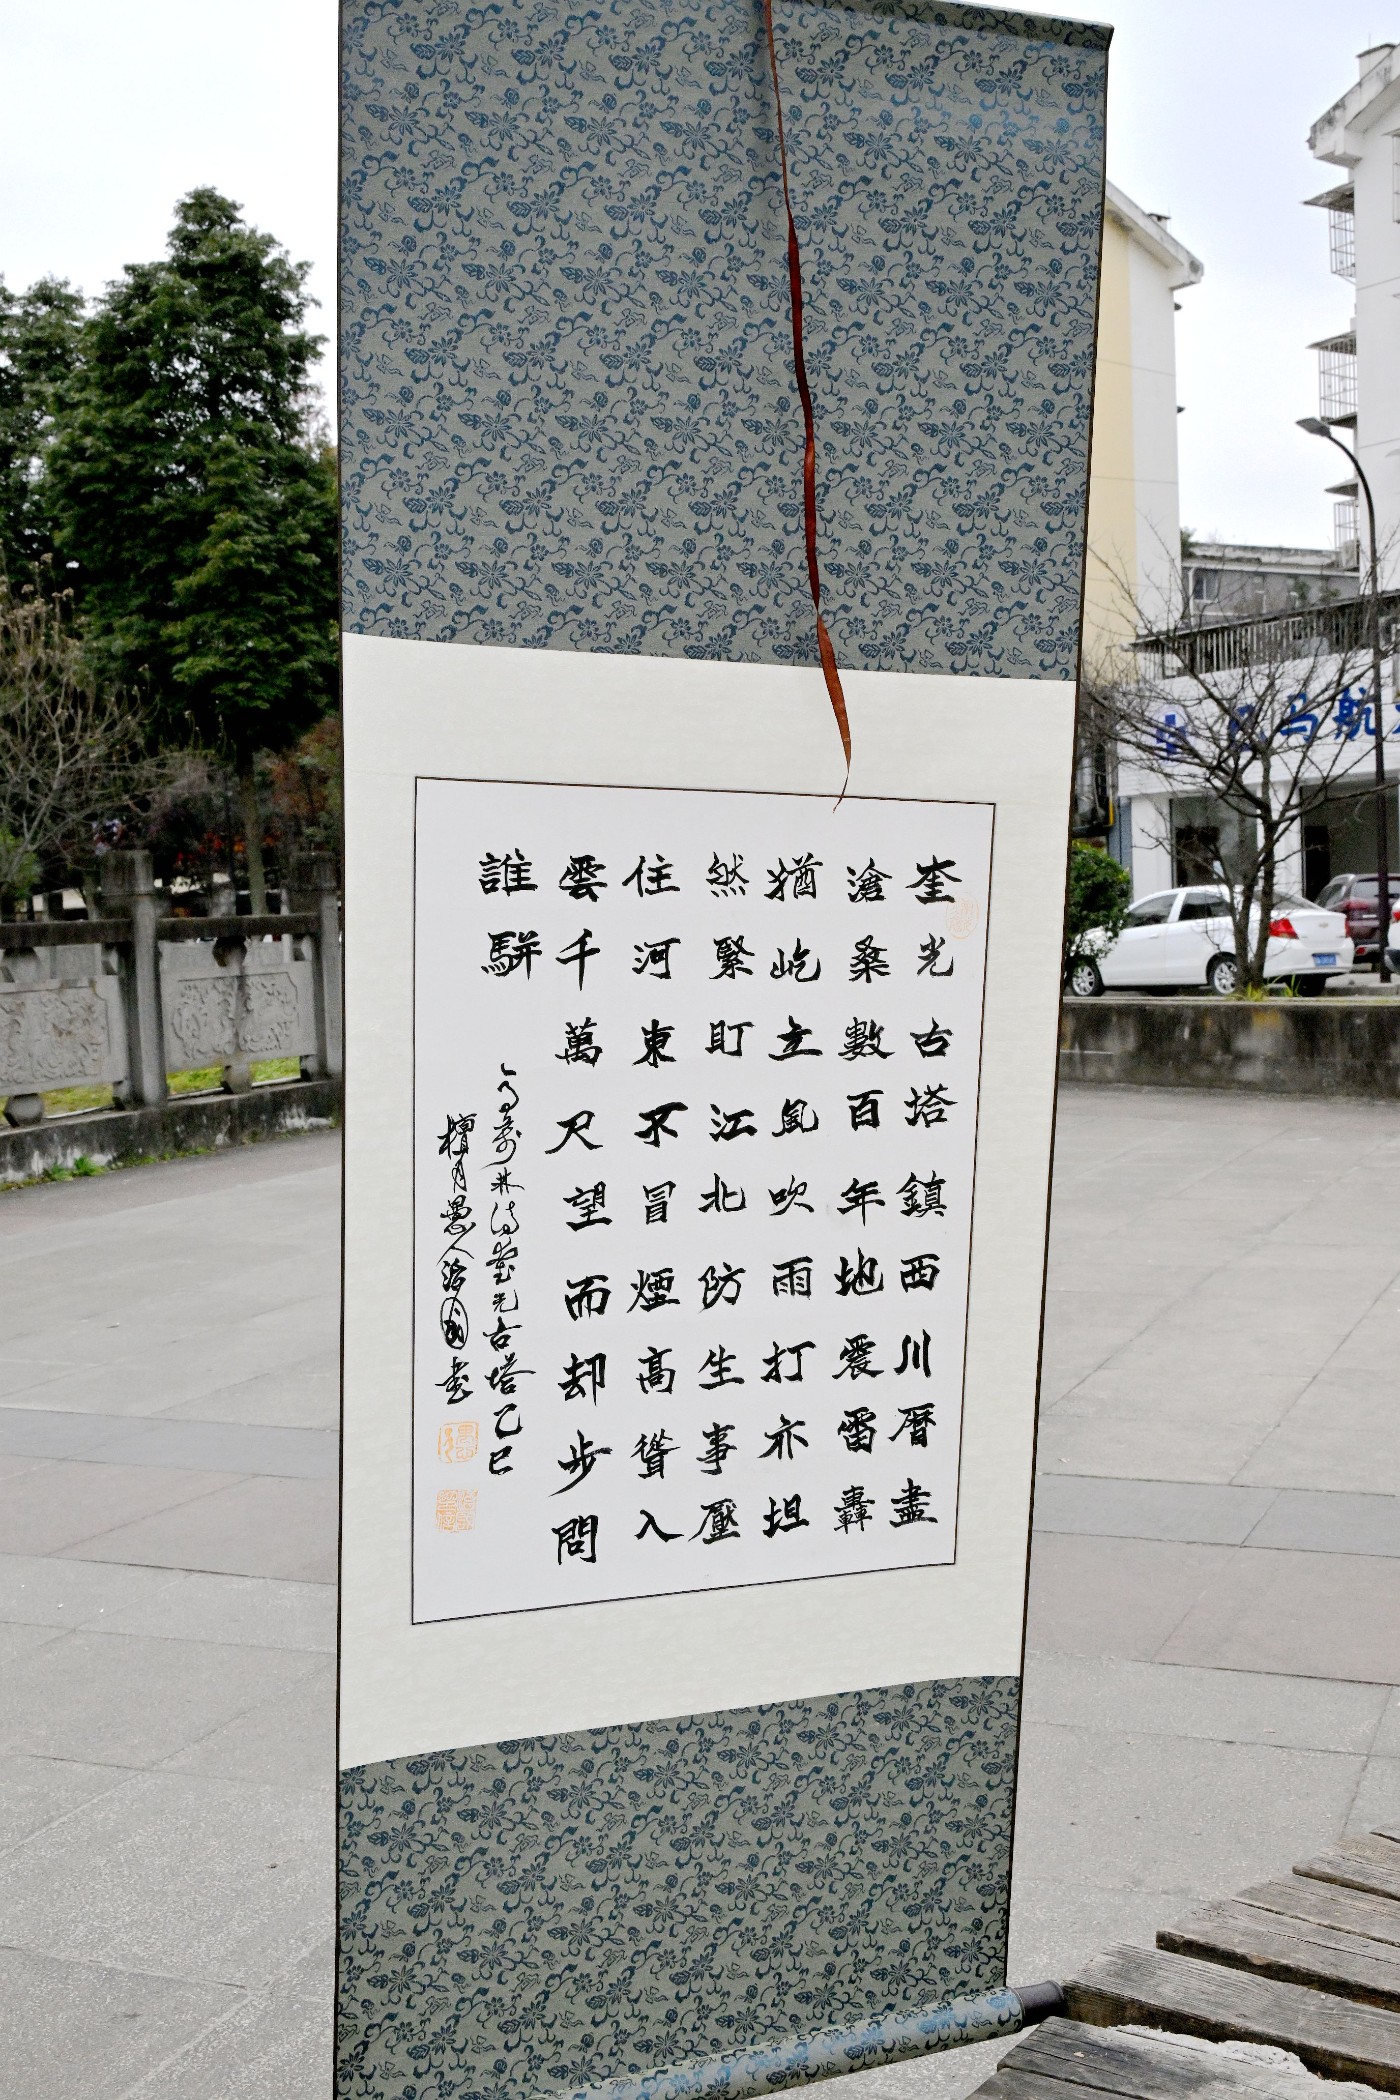 奎光古塔鎮西川曆盡
滄桑數百年地震雷轟
猶屹立風吹雨打亦坦
然緊盯江北防生事壓
住河東不冒煙高聳入
雲千萬尺望而却步問
誰駢
壽林詩奎光古塔乙巳
檀月愚人治國書
马航